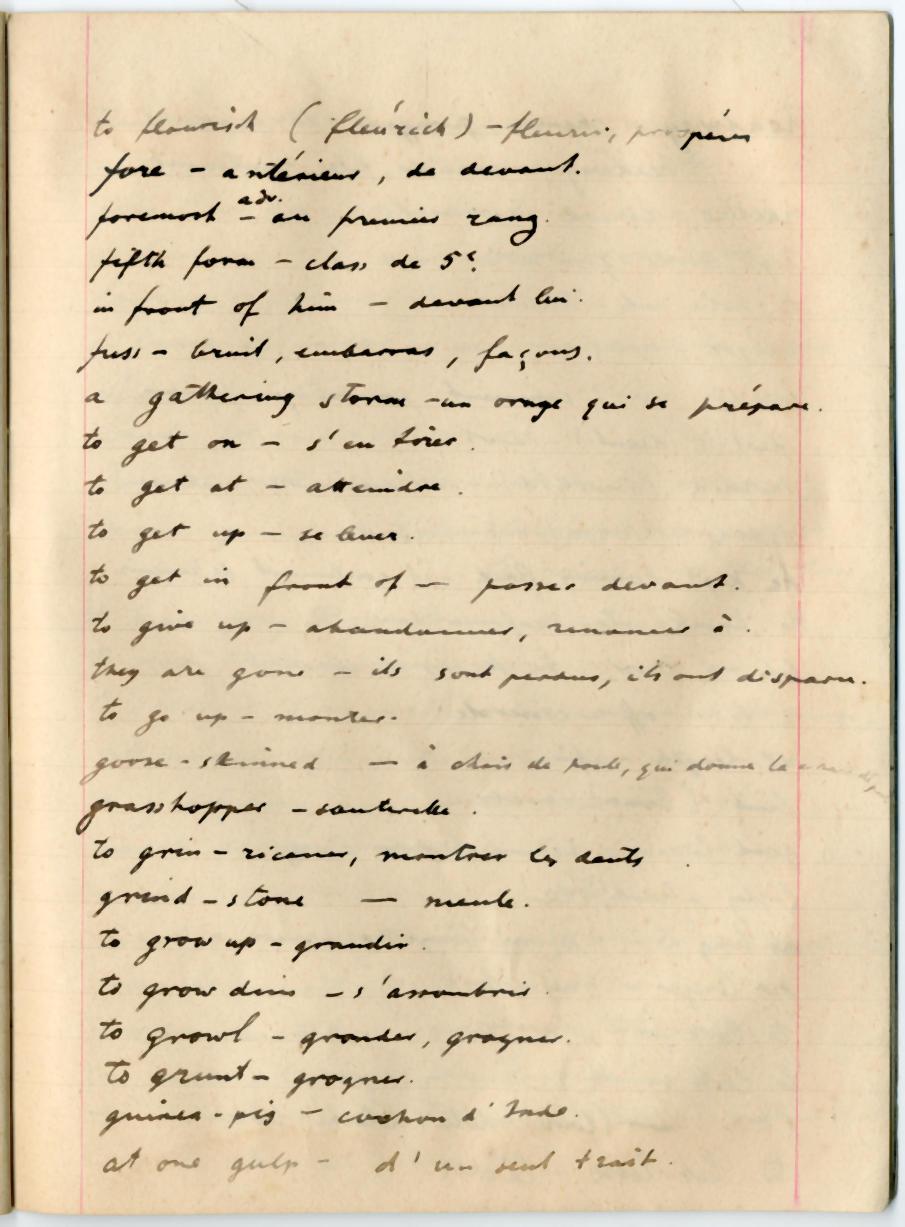 to flourish (fleúrich) - fleurir, prospérer
fore - antérieur, de devant.
foremost - adv. au premier rang.
fifth form - class de 5e.
in front of him - devant lui.
fuss - bruit, embarras, façons.
a gathering storm - un orage qui se prépare.
to get on - s'en tirer.
to get at - atteindre.
to get up - se lever.
to get in front of - passer devant.
to give up - abandonner, renoncer à.
they are gone - ils sont perdus, ils ont disparu.
to go up - monter.
goose-skinned - à chair de poule, qui donne la
grasshopper - sauterelle.
to grin - ricaner, montrer les dents.
grind-stone - meule.
to grow up - grandir.
to grow dim - s'assombrir.
to growl - gronder, grogner.
to grunt - grogner.
guinea-pig - cochon d'Inde.
at one gulp - d'un seul trait.